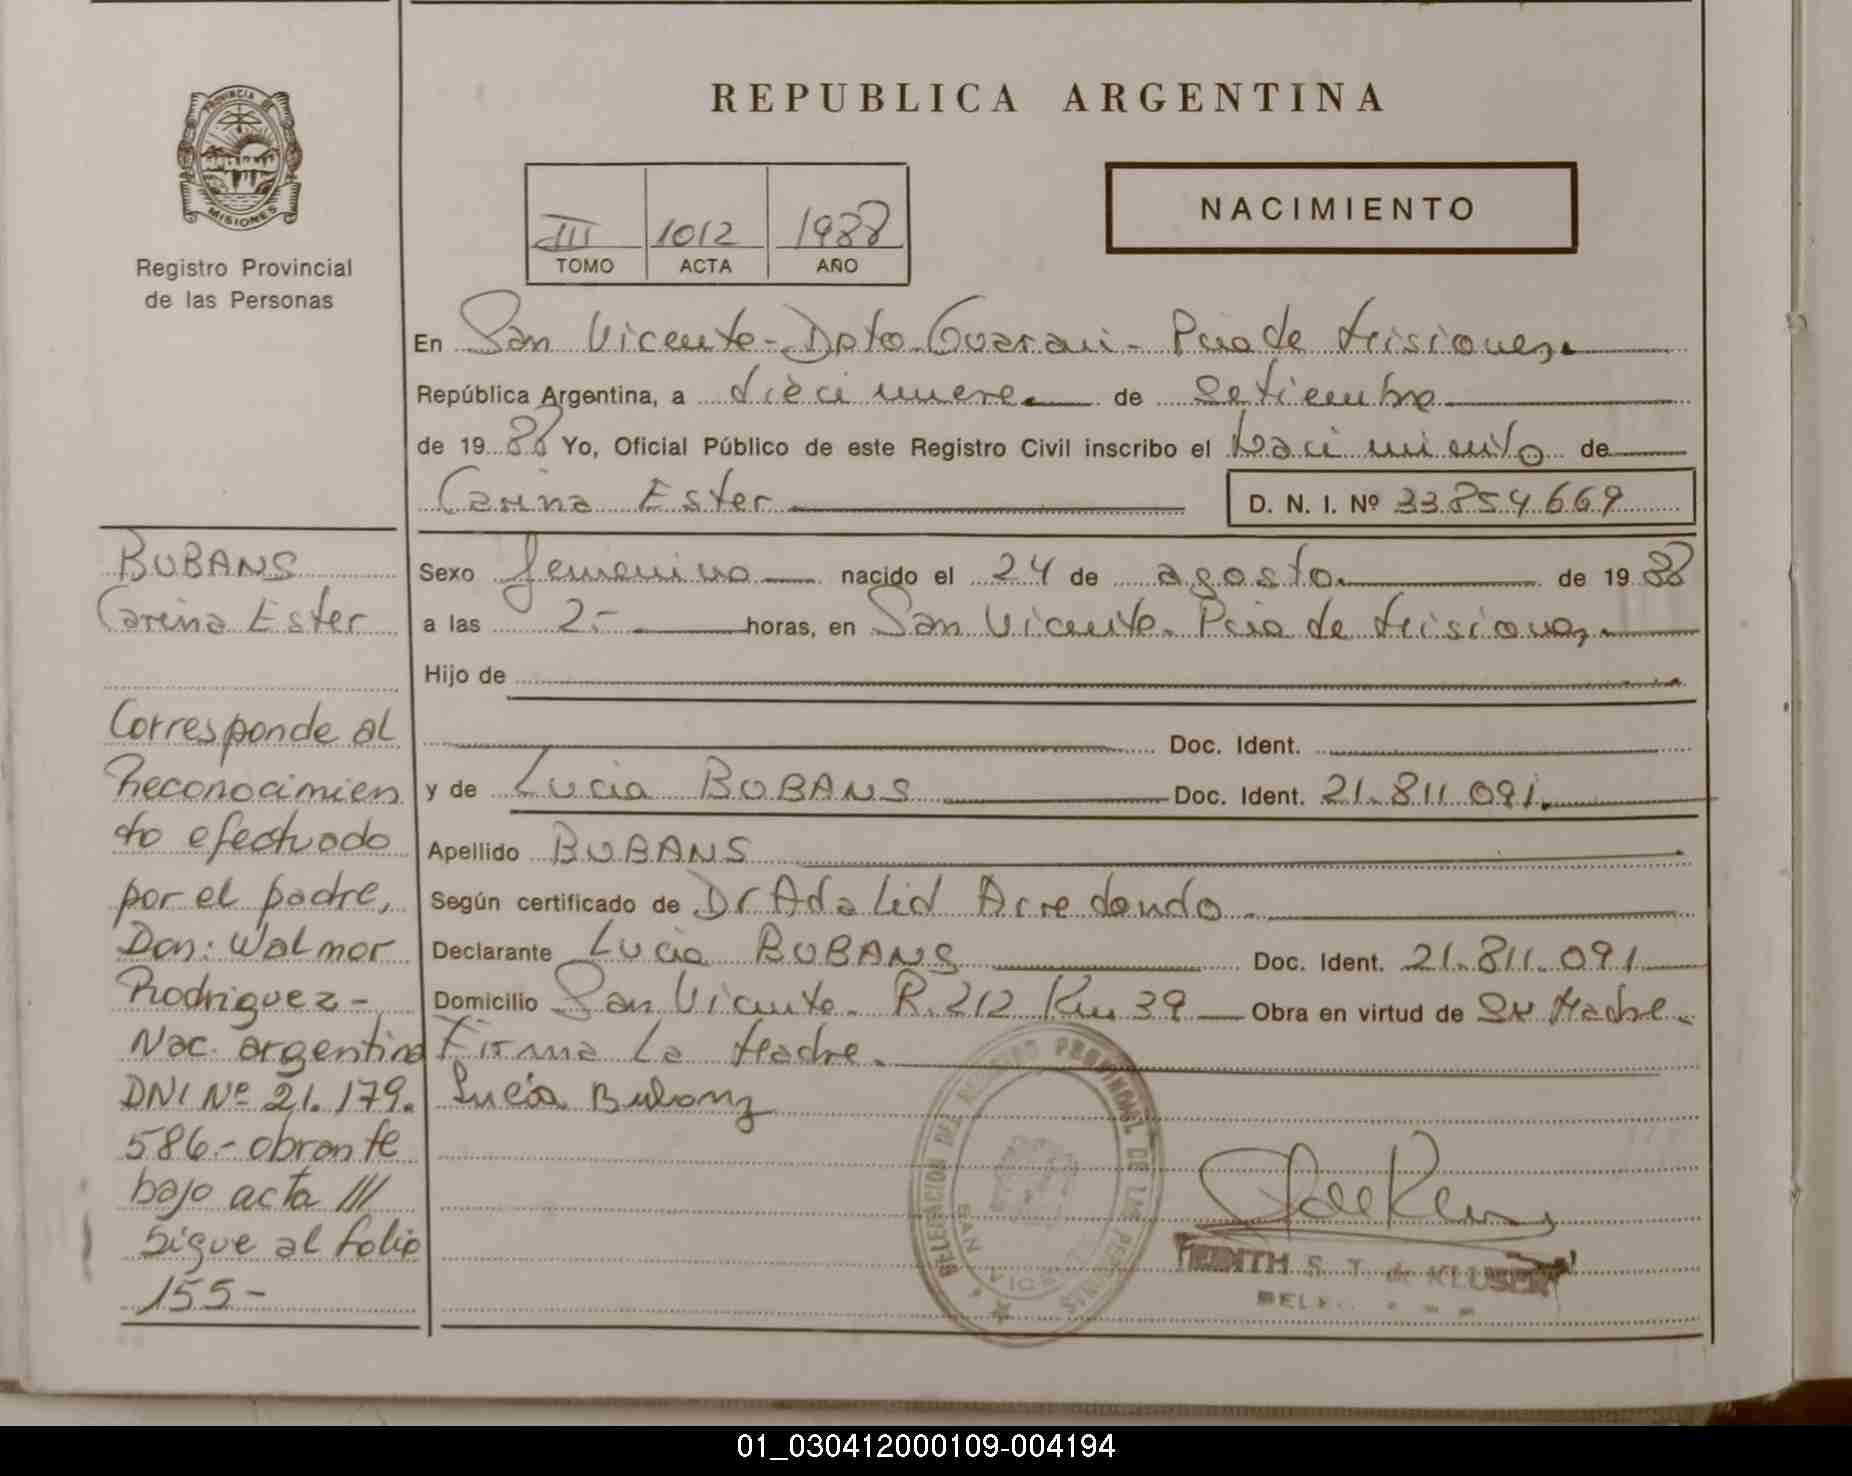 PROVINCIA DE
MISIONES
Registro Provincial
de las Personas
REPUBLICA ARGENTINA
III 1012 1988
TOMO ACTA AÑO
NACIMIENTO
En San Vicente - Dpto Guarani - Pcia de Misiones
República Argentina, a diecinueve de Setiembre
de 1988 Yo, Oficial Público de este Registro Civil inscribo el Nacimiento de
Carina Ester D. N. I. Nº 33.854.669
Sexo femenino nacido el 24 de agosto de 1988
a las 2.- horas, en San Vicente. Pcia de Misiones
Hijo de
Doc. Ident.
y de Lucia BUBANS Doc. Ident. 21.811.091.
Apellido BUBANS
Según certificado de Dr Adalid Arredondo.
Declarante Lucia BUBANS Doc. Ident. 21.811.091
Domicilio San Vicente. R. 212 Km 39 Obra en virtud de Su Madre.
Firma La Madre.
Lucia Bubanz
DELEGACION DEL REGISTRO PROVINCIAL DE LAS PERSONAS
SAN VICENTE
S. T. de KLUSER
BUBANS
Carina Ester
Corresponde al
Reconocimien
to efectuado
por el padre,
Don: Walmor
Rodriguez -
Nac. argentina
DNI Nº 21.179.
586.- obrante
bajo acta III
Sigue al folio
155-
01_030412000109-004194